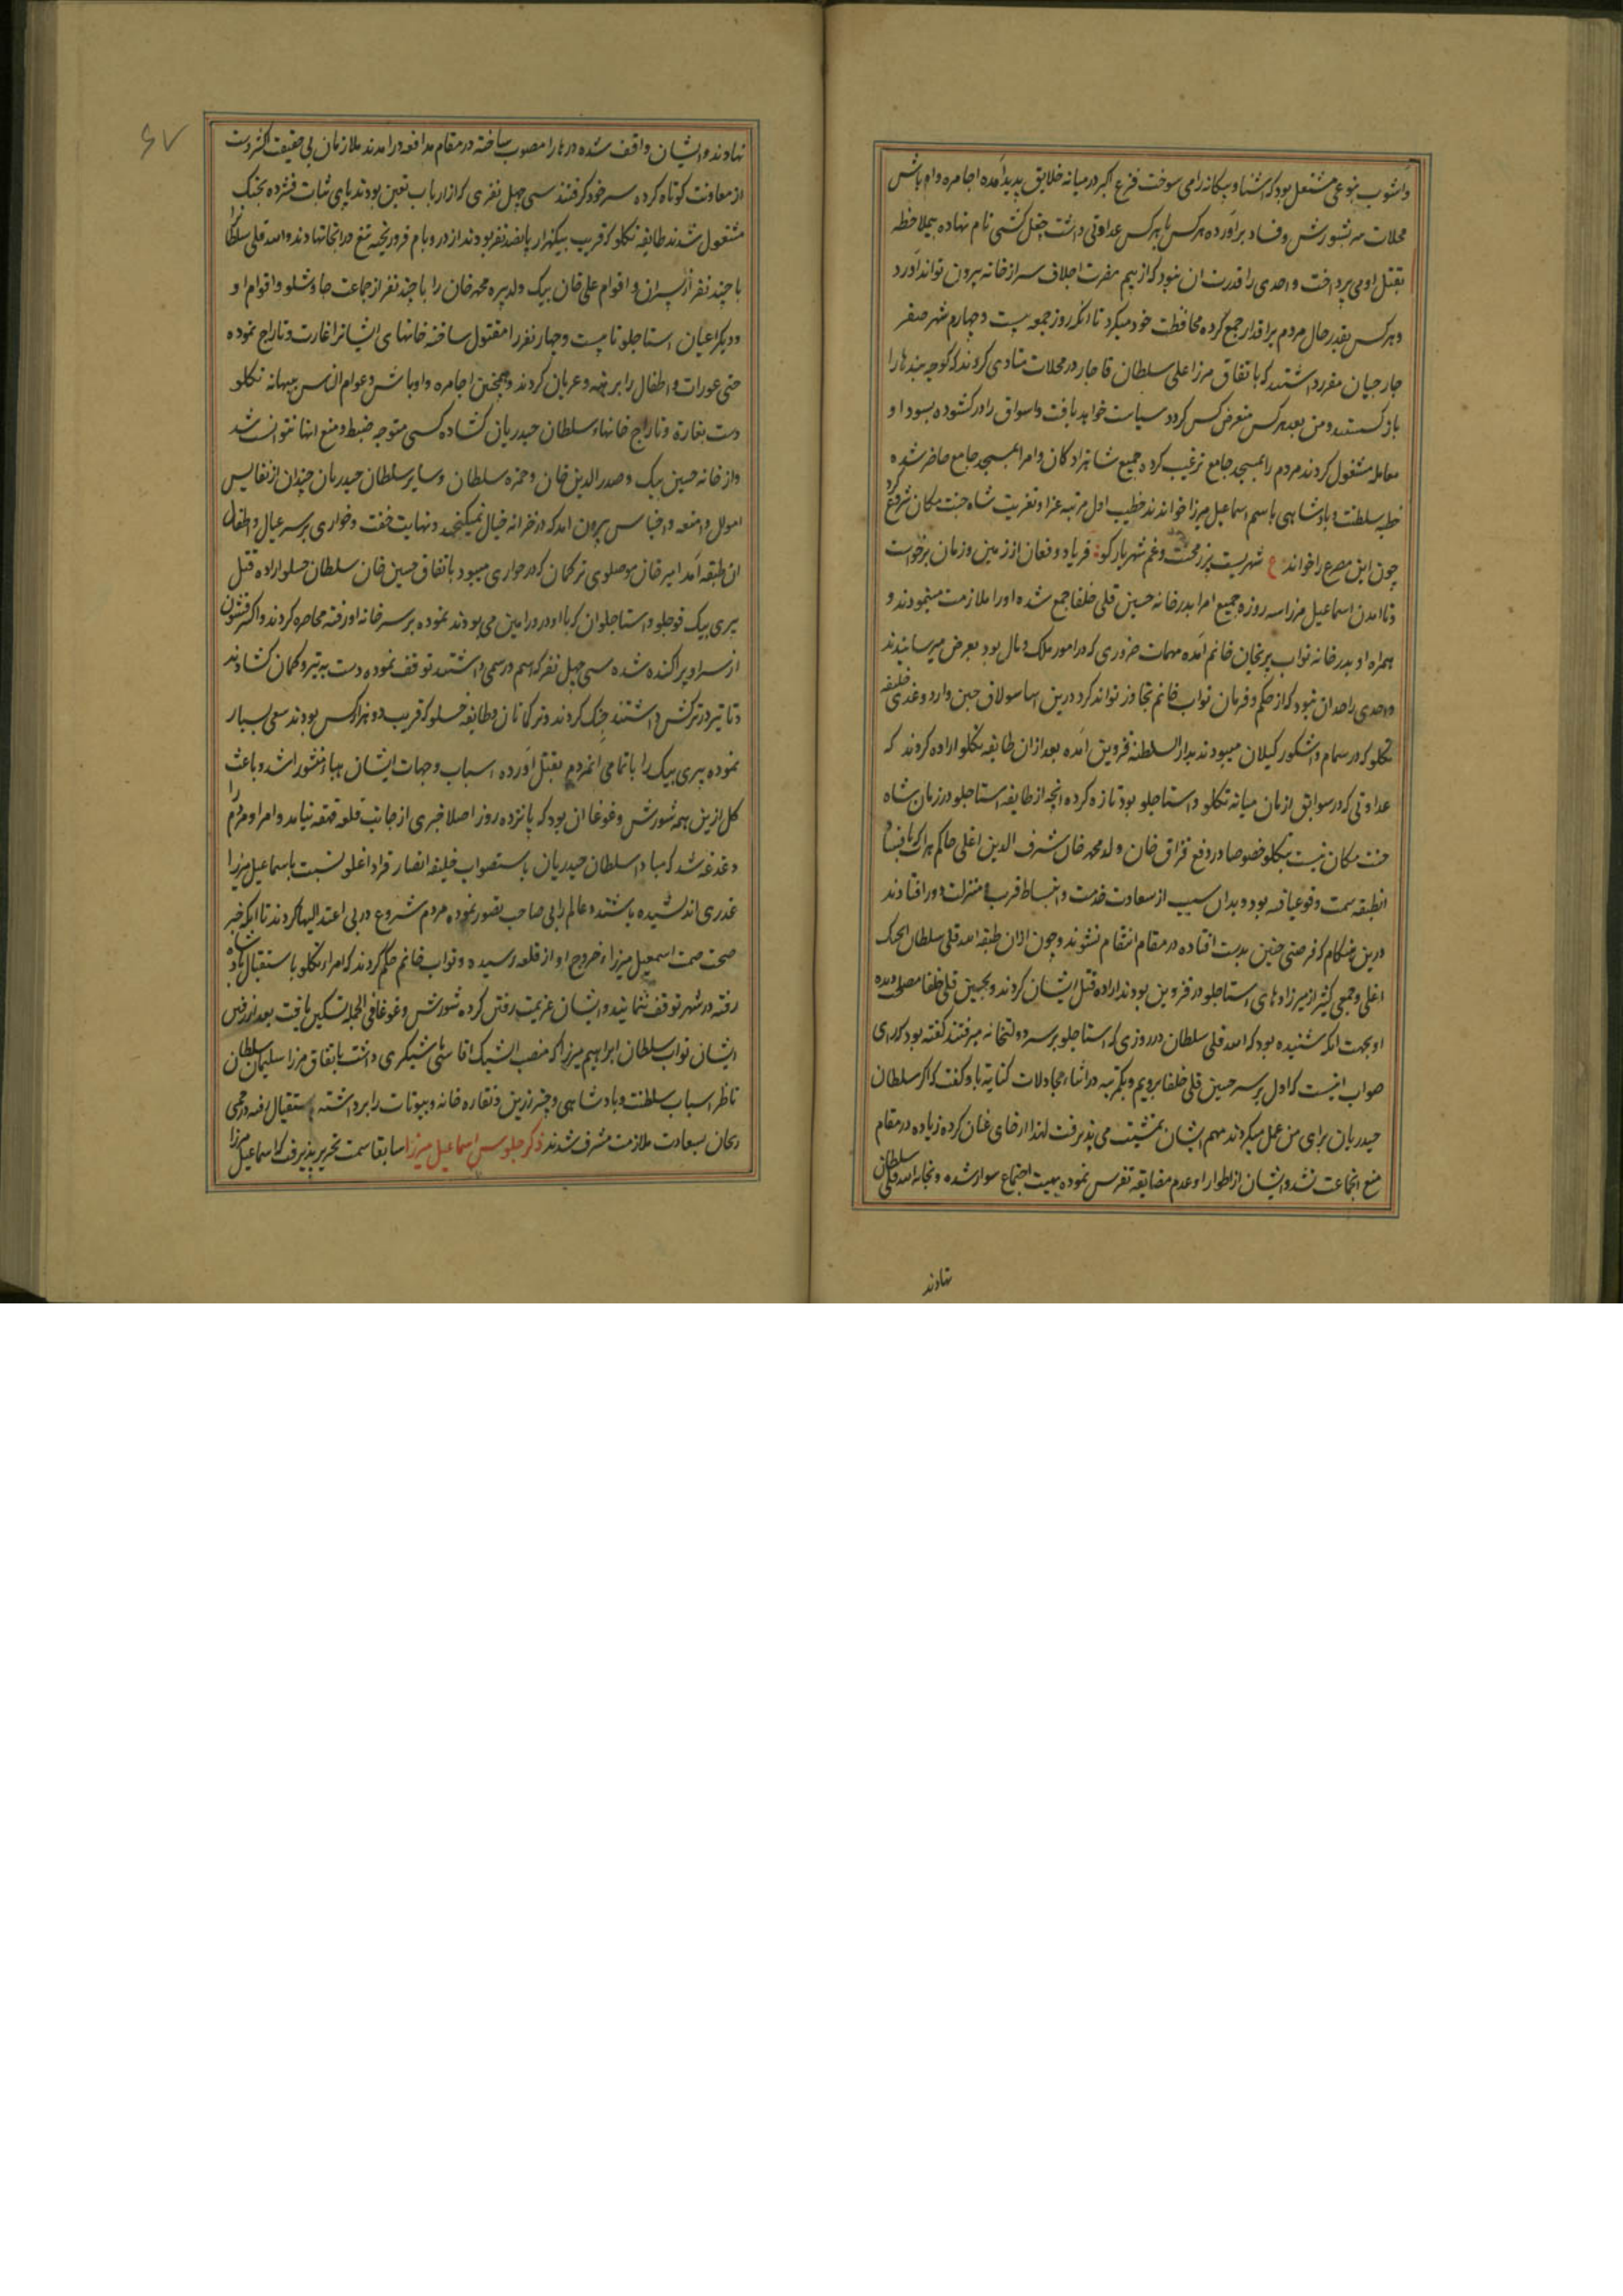 و آشوب بنوعی مشتعل بود که آشنا و بیگانه را می سوخت فزع اکبر در میانه خلایق پدید آمده اجامره و اوباش
محلات سر بشورش و فساد برآورده هرکس با هرکس عداوتی داشت نام نهاده بیملاحظه
بقتل او می پرداخت و احدی را قدرت ان نبود که از بیم مضرت اجلاف سر از خانه بیرون تواند آورد
و هرکس بقدر حال مردم یراقدار جمع کرده محافظت خود میکرد تا انکه روز جمعه بیست و چهارم شهر صفر
جارجیان مقرر داشتند که باتفاق مرزا علی سلطان قاجار در محلات منادی کردند که کوچه بندها را
باز کنند و من بعد هرکس متعرض کس کردد سیاست خواهد یافت و اسواق را در کشوده بسودا و
معامله مشغول کردند مردم را بمسجد جامع ترغیب کرده جمیع شاهزادکان و امرا بمسجد جامع حاضر شده
خطبه سلطنت و پادشاهی باسم اسماعیل میرزا خواندند خطیب اول مرتبه عزا و تعزیت شاه جنت مکان شروع کرد
چون این مصرع را خواند ع شهریست پر ز محنت و غم شهریار کو فریاد و فغان از زمین و زمان برخواست
و تا آمدن اسماعیل مرزا سه روزه جمیع امرا بدرخانه حسین قلی خلفا جمع شده او را ملازمت مینمودند و
همراه او بدرخانه نواب پریخان خانم آمده مهمات ضروری که در امور ملک و مال بود بعرض میرسانیدند
و احدی را حد ان نبود که از حکم و فرمان نواب خانم تجاوز تواند کرد درین اثنا سولاق حسین و اردوغدی خلیفه
تکلو که در سمام و اشکور کیلان میبودند بدار السلطنه قزوین آمده بعد از ان طایفه تکلو اراده کردند که
عداوتی که در سوابق ازمان میانه تکلو و استاجلو بود تازه کرده انچه از طایفه استاجلو در زمان شاه
جنت مکان نسبت بتکلو خصوصا در دفع قزاق خان ولد محمد خان شرف الدین اغلی حاکم هراة که بافساد
انطبقه سمت وقوع یافته بود و بدان سبب از سعادت خدمت و بساط قرب و منزلت دور افتادند
درین هنکام که فرصتی چنین بدست افتاده در مقام انتقام شوند و چون ازان طبقه الله قلی سلطان ایجک
اغلی و جمعی کثیر از میرزادهای استاجلو در قزوین بودند اراده قتل ایشان کردند و حسین قلی خلفا مصلحت دیده
او بجهت انکه شنیده بود که الله قلی سلطان در روزی که استاجلو بر سر دولتخانه میرفتند گفته بود که رای
صواب انست که اول بر سر حسین قلی خلفا برویم و یکمرتبه در اثناء مجادلات کنایه باو گفت که اگر سلطان
حیدریان برای من عمل میکردند مهم ایشان بمشیت می پذیرفت لهذا ارخای عنان کرده زیاده در مقام
منع انجماعت نشد و ایشان از اطوار او عدم مضایقه تفرس نموده بهیت اجتماع سوار شده و بخانه الله قلی سلطان
نهادند
۶۷
نهادند و ایشان واقف شده درها را مصوب ساخته در مقام مدافعه درامدند ملازمان بی حقیقت اکثر دست
از معاونت کوتاه کرده سر خود گرفتند سی چهل نفری که از ارباب تعین بودند پای ثبات فشرده بجنک
مشغول شدند طایفه تکلو که قریب بیکهزار پانصد نفر بودند از در و بام فرو ریخته تیغ در انجا نهادند و الله قلی سلطان را
با چند نفر از پسران و اقوام علی خان بیک ولد پیره محمد خان را با چند نفر از جماعت چاوشلو و اقوام او
و دیکر اعیان استاجلو تا بیست و چهار نفر را مقتول ساخته خانهای ایشانرا غارت و تاراج نموده
حتی عورات و اطفال را برهنه و عریان کردند و همچنین اجامره و اوباش و عوام الناس ببهانه تکلو
دست بغارة و تاراج خانهاء سلطان حیدریان کشاده کسی متوجه ضبط و منع انها نتوانست شد
و از خانه حسین بیک و صدرالدین خان و حمزه سلطان و سایر سلطان حیدریان چندان از نفایس
اموال و امتعه و اجناس بیرون امد که در خزانه خیال نمیکنجد و نهایت خفت و خواری بر سر عیال و اطفال
ان طبقه آمد امیر خان موصلوی ترکمان که در حواری میبود باتفاق حسین خان سلطان خنسلو اراده قتل
پیری بیک قوجلو و استاجلوان که با او در ورامین می بودند نموده بر سر خانه او رفته محاصره کردند و اکثر قشون
از سر او پراکنده شده سی چهل نفر که اسم و رسمی داشتند توقف نموده دست به تیر و کمان کشادند
و تا تیر در ترکش داشتند جنک کردند و ترکمانان و طایفه خنسلو که قریب دو هزار کس بودند سعی بسیار
نموده پیری بیک را با تمامی انمردم بقتل آورده اسباب و جهات ایشان هباء منثورا شد و باعث
کل ازین همه شورش و غوغا ان بود که پانزده روز اصلا خبری از جانب قلعه قهقهه نیامد و امرا و مردم را
دغدغه شد که مبادا سلطان حیدریان باستصواب خلیفه انصار قراداغلو نسبت باسماعیل میرزا
غدری اندیشیده باشند و عالم را بی صاحب تصور نموده مردم شروع در بی اعتدالیها کردند تا انکه خبر
صحت اسمعیل میرزا و خروج او از قلعه رسیده و نواب خانم حکم کردند که امراء تکلو باستقبال پادشاه
رفته در شهر توقف ننمایند و ایشان عزیمت رفتن کرده شورش و غوغا فی الجمله تسکین یافت بعد از رفتن
ایشان نواب سلطان ابراهیم میرزا که منصب ایشیک اقاسی باشیکری داشت باتفاق مرزا سلیمان سلطان
ناظر اسباب سلطنت و پادشاهی و چتر زرین و نقاره خانه و بیوتات را برداشته باستقبال رفته در
زنجان بسعادت ملازمت مشرف شدند ذکر جلوس اسماعیل میرزا سابقا سمت تحریر پذیرفت که اسماعیل میرزا